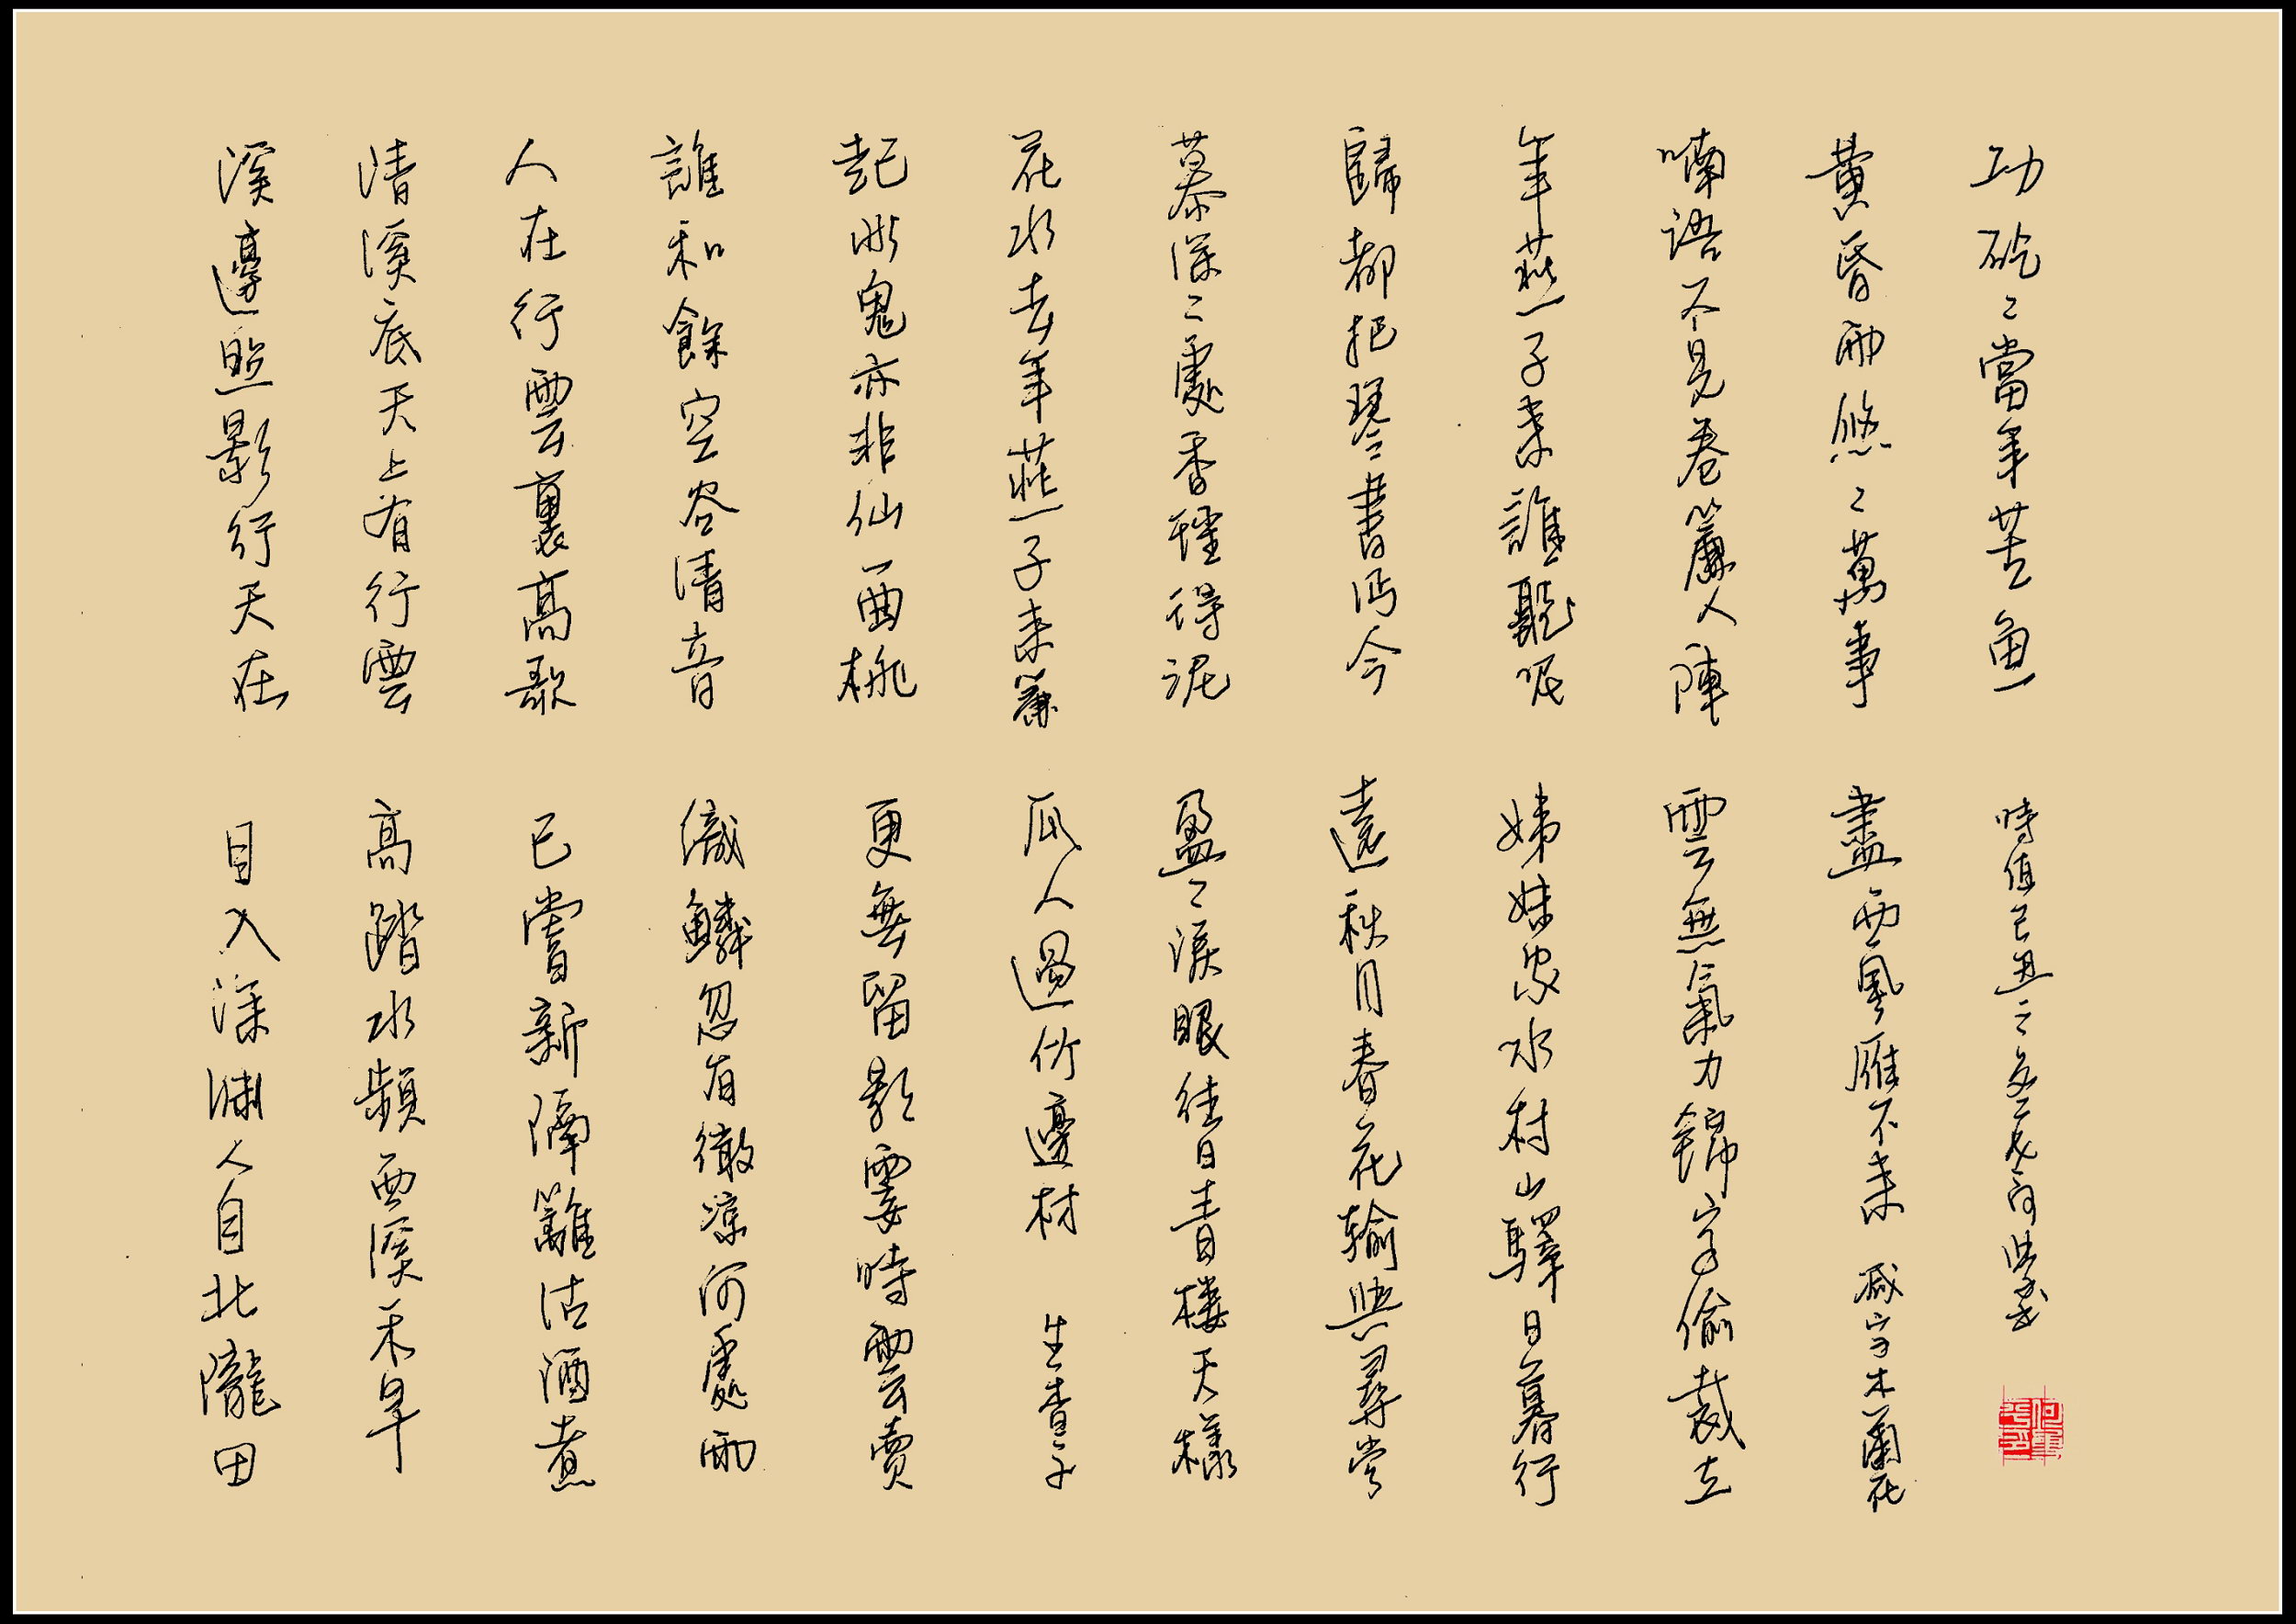 溪邊照影行天在
清溪底天上有行雲
人在行雲裏高歌
誰和餘空谷清音
起非鬼亦非仙一曲桃
花水去年燕子来簾
幕深々處香徑得泥
歸都把琴書污今
年燕子来誰聽呢
喃語不見卷簾人陣
黄昏雨悠々萬事
功矻々當年苦魚
自入深淵人自北隴田
高踏水頻西溪禾早
已嘗新隔籬沽酒煮
纖鱗忽有微凉何處雨
更無留影霎時雲賣
瓜人過竹邊村 生查子
盈々淚眼往日青樓天樣
遠秋月春花輸與尋常
姊妹家水村山驛日暮行
雲無氣力錦字偷裁立
盡西風雁不来 減字木蘭花
時值己丑之冬